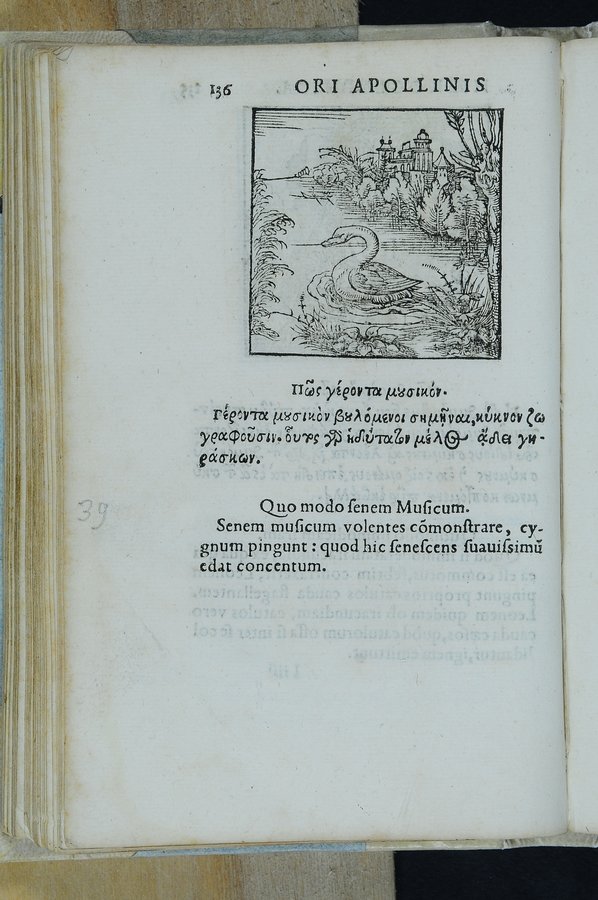 136 ORI APOLLINIS
Πῶς γέροντα μȣσικόν.
Γέροντα μȣσικὸν βȣλόμενοι σημῆναι, κύκνον ζω
γραφοῦσιν. οὗτος γὰρ ἡδύτατον μέλος ᾄδει γη-
ράσκων.
39
Quo modo senem Musicum.
Senem musicum volentes cōmonstrare, cy-
gnum pingunt: quod hic senescens suauissimū
edat concentum.